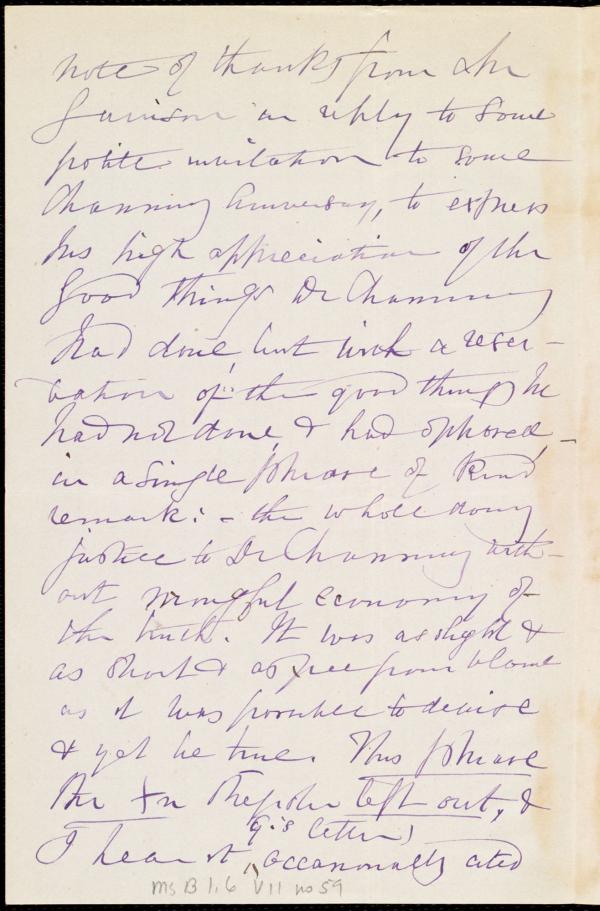 note of thanks from Mr
Garrison in reply to some
polite invitation to some
Channing Anniversary, to express
his high appreciation of the
good things Dr Channing
had done, but with a reser-
vation of the good things he
had not done, & had opposed,-
in a single phrase of kind
remark: - the whole doing
justice to Dr Channing with-
out wrongful economy of
the truth. It was as slight &
as short & as free from blame
as it was possible to devise
& yet be true. This phrase
the Xn Register left out, &
G's letter)
I hear it occasionally cited
Ms B 1.6 V11 no 59